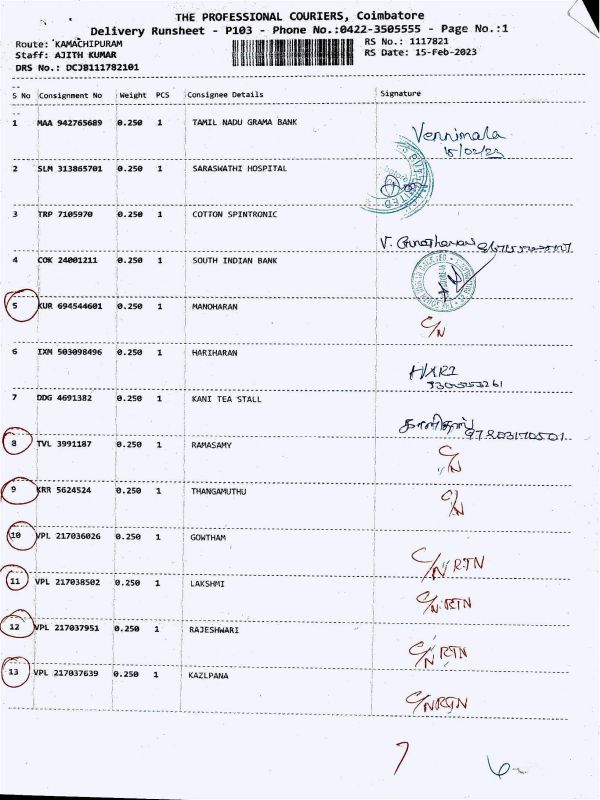 THE PROFESSIONAL COURIERS, Coimbatore
Delivery Runsheet - P103 - Phone No.:0422-3505555 - Page No.:1
Route: KAMACHIPURAM
RS No.: 1117821
Staff: AJITH KUMAR
RS Date: 15-Feb-2023
DRS No.: DCJB111782101
S No Consignment No Weight PCS Consignee Details Signature
1 MAA 942765689 0.250 1 TAMIL NADU GRAMA BANK Vennimala
15/02/23
2 SLM 313865701 0.250 1 SARASWATHI HOSPITAL
3 TRP 7105970 0.250 1 COTTON SPINTRONIC
4 COK 24001211 0.250 1 SOUTH INDIAN BANK
5 KUR 694544601 0.250 1 MANOHARAN C/N
6 IXM 503098496 0.250 1 HARIHARAN HARI
7 DDG 4691382 0.250 1 KANI TEA STALL
8 TVL 3991187 0.250 1 RAMASAMY C/N
9 KRR 5624524 0.250 1 THANGAMUTHU C/N
10 VPL 217036026 0.250 1 GOWTHAM C/N RTN
11 VPL 217038502 0.250 1 LAKSHMI C/N RTN
12 VPL 217037951 0.250 1 RAJESHWARI C/N RTN
13 VPL 217037639 0.250 1 KAZLPANA C/N RTN
7 6